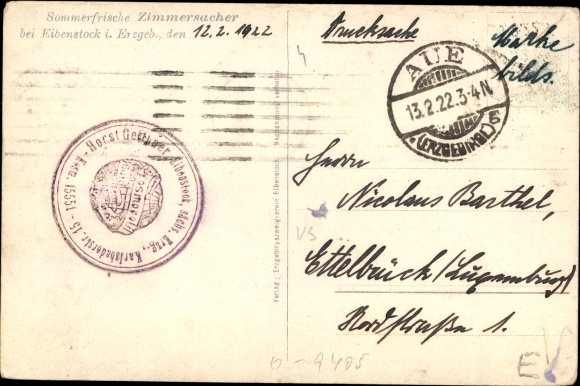 Sommerfrische Zimmersacher
bei Eibenstock i. Erzgeb., den 12.2.1922
Drucksache
Marke
bilds.
AUE
13.2.22.3-4N.
(ERZGEBIRGE)
Herrn
Nicolaus Barthel,
Ettelbrück (Luxemburg)
Nordstraße 1.
Horst Eibenstock, sächs. Erzg., Karlsbaderstr. 15 - 15551 -
Verlag: Erzgebirgszweigverein Eibenstock.
VS
0-9405
E